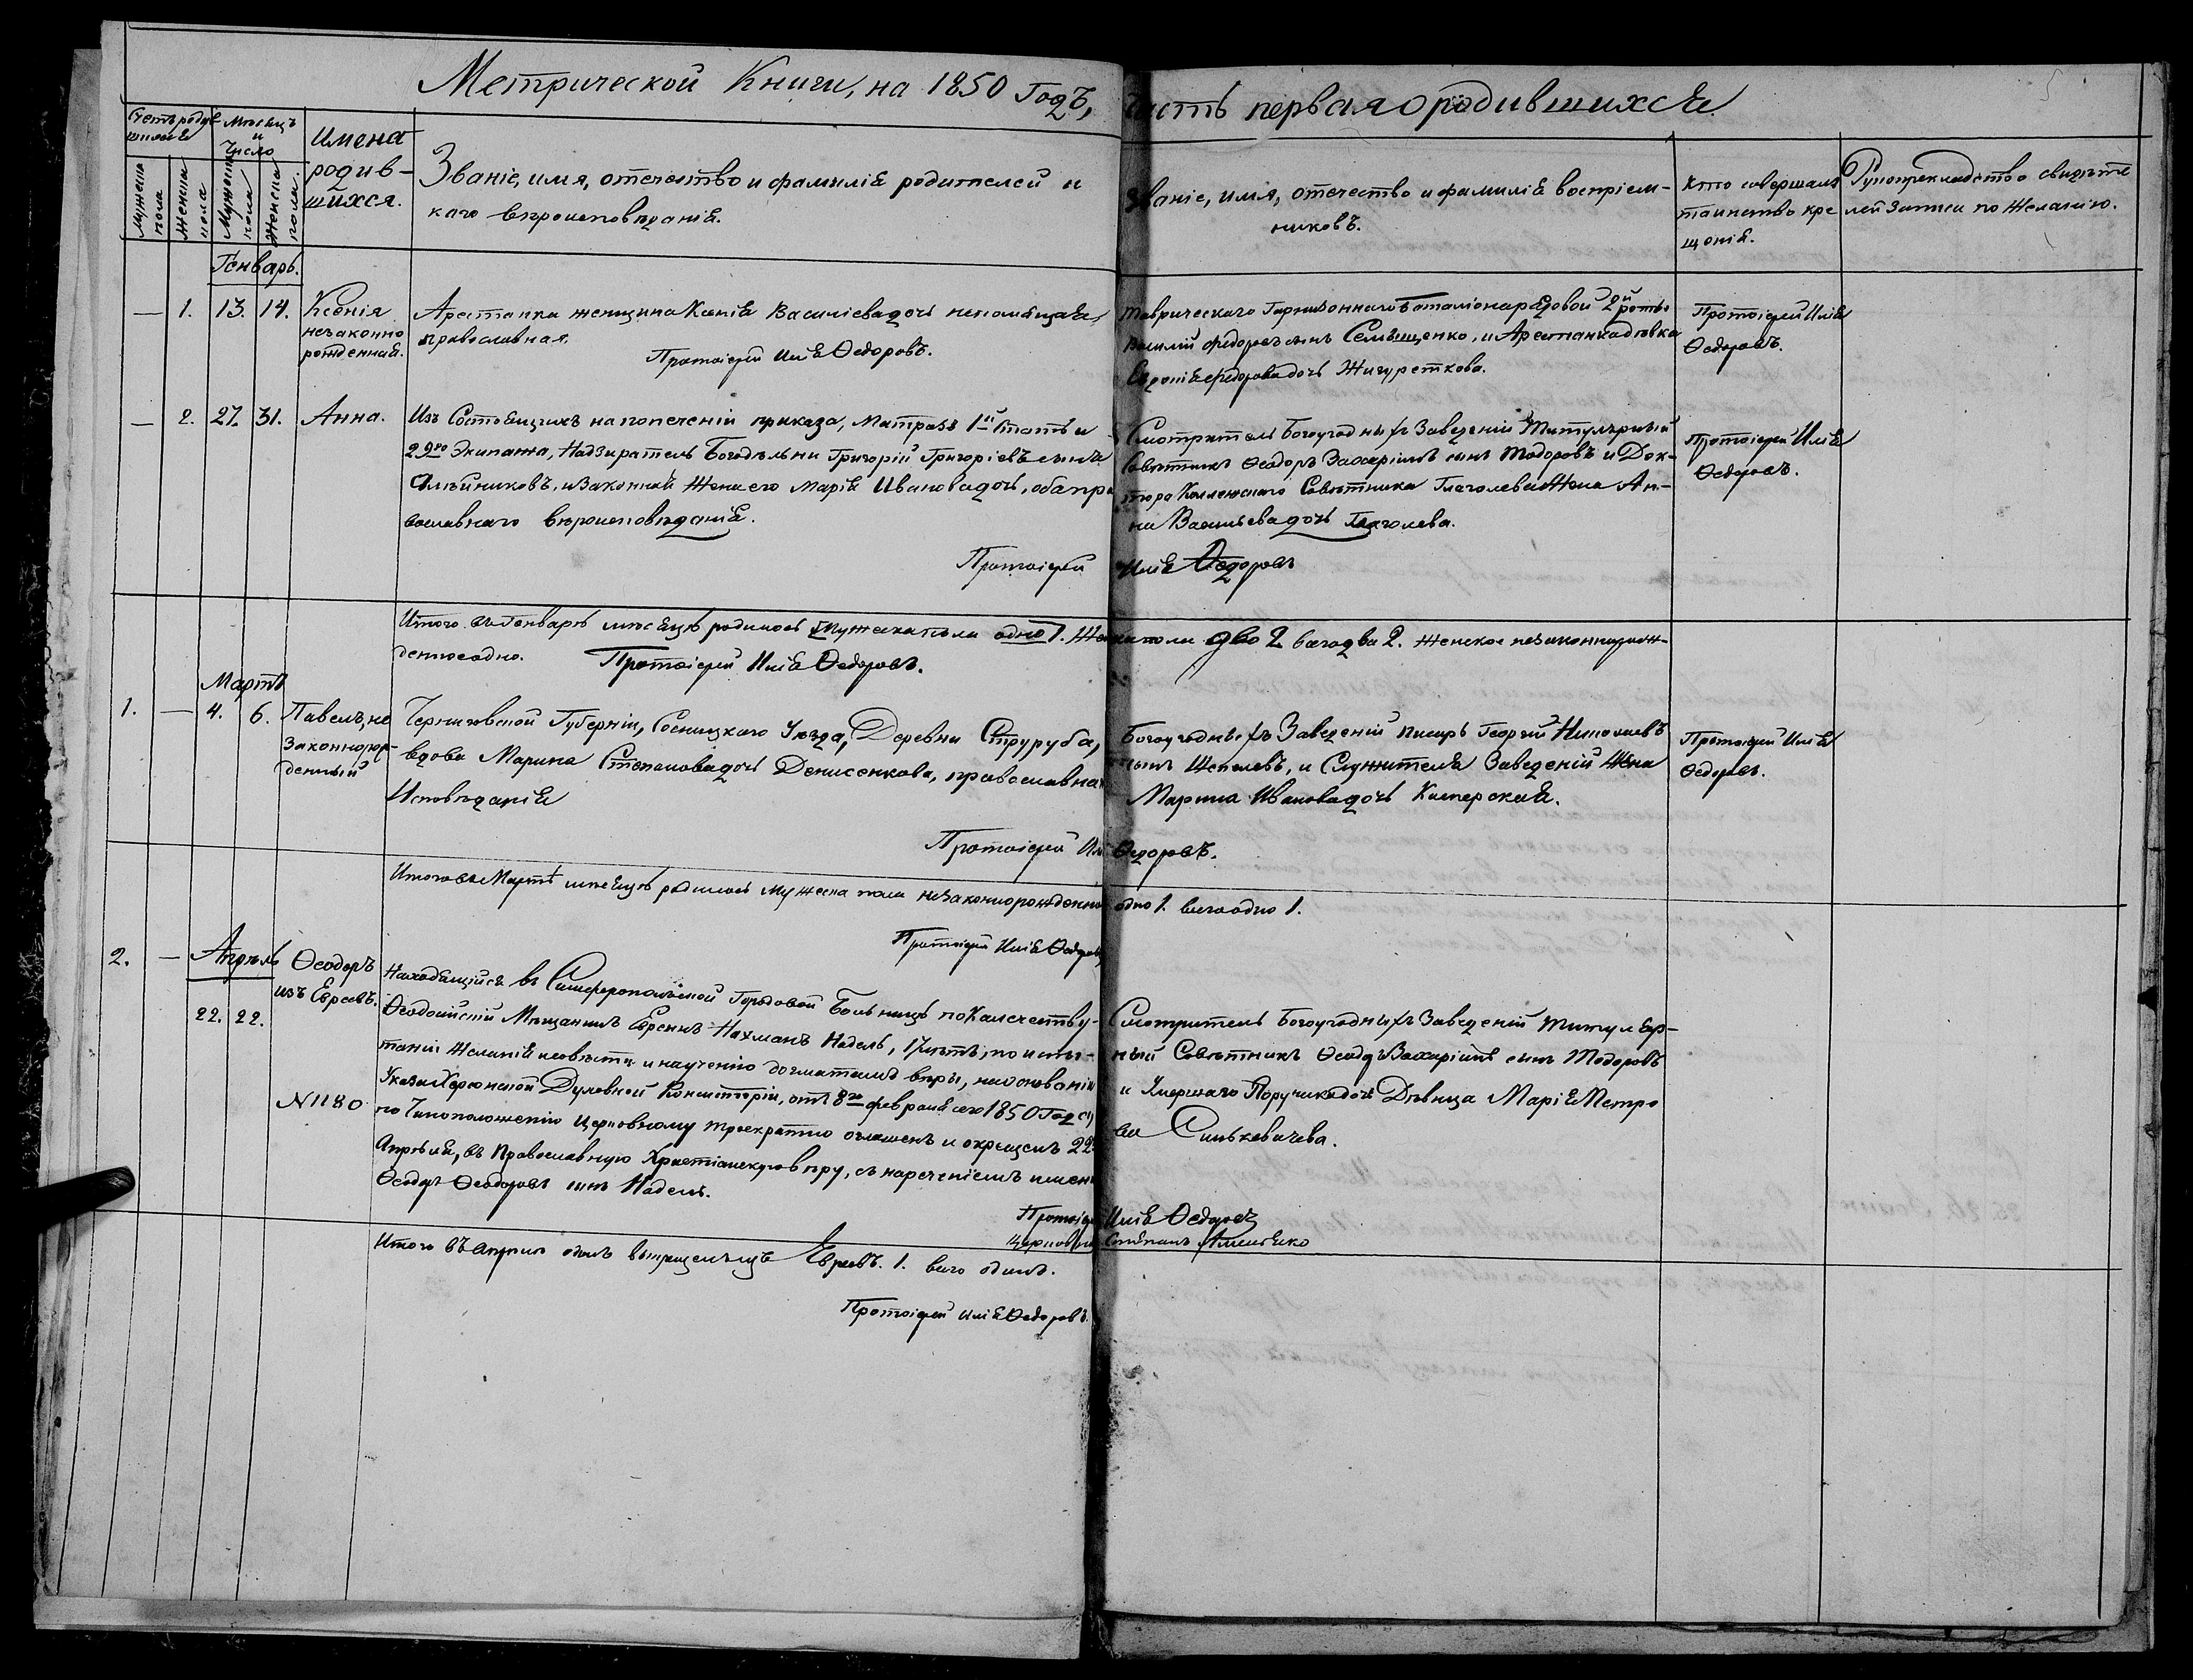 Метрической Книги, на 1850 Годъ, часть первая о родившихся
Счетъ родившихся
Мѣсяцъ и Число
Имена родив-
шихся.
Мужеска пола
Женска пола
Мужеска пола
Женска пола
Званіе, имя, отечество и фамилія родителей и
каго вѣроисповѣданія.
Званіе, имя, отечество и фамилія воспріем-
никовъ.
Кто совершалъ
таинство кре
щенія.
Рукоприкладство свидѣте
лей записи по желанію.
Генварь.
— 1. 13. 14.
Ксенія
незаконно
рожденная.
Арестанка женщина Ксенія Василіева дочь непомнящая,
православная.
Протоіерей Илія Ѳедоровъ.
Таврическаго Гарнизоннаго Баталіона рядовой 2й роты
Василій Федоровъ сынъ Семѣщенко, и Арестанка дѣвка
Евдокія Федорова дочь Жигуреткова.
Протоіерей Илія
Ѳедоровъ.
— 2. 27. 31.
Анна.
Изъ Состоящихъ на попеченіи приказа, Матросъ 1й статьи
29го Экипажа, Надзиратель Богодѣльни Григорій Григоріевъ сынъ
Олѣйниковъ, и Законная Жена его Марія Ивановадочь, оба пра
вославнаго вѣроисповѣданія.
Смотритель Богоугодныхъ Заведеній Титулярный
Совѣтникъ Ѳеодоръ Захаріинъ сынъ Тодоровъ и Док-
тора Коллежскаго Совѣтника Глаголева Жена Ан-
на Васильева дочь Глаголева.
Протоіерей Илія
Ѳедоровъ.
Протоіерей Илія Ѳедоровъ
Итого въ Генварѣ мѣсяцѣ родилось Мужеска пола одно 1. Женска пола двѣ 2 всего два 2. Женское незаконнорож-
денное одно. Протоіерей Илія Ѳедоровъ.
Мартъ
1. — 4. 6.
Павелъ, не
законнорож-
денный
Черниговской Губерніи, Сосницкаго Уѣзда, Деревни Струруба,
вдова Марина Степановадочь Денисенкова, православна
Исповѣданія
Богоугодныхъ Заведеній писарь Георгій Николаевъ
сынъ Щепелевъ, и Служителя Заведеній Жена
Марина Ивановадочь Кимерская.
Протоіерей Илія
Ѳедоровъ.
Протоіерей Илія Ѳедоровъ.
Итого въ Мартѣ мѣсяцѣ родилось Мужеска пола незаконнорожденно одно 1. всего одно 1.
Протоіерей Илія Ѳедоровъ
2. — Апрѣль
22. 22.
Ѳеодоръ
изъ Евреевъ.
N 1180
Находящійся въ Симферопольской Городовой Больницѣ по Калечеству
Ѳеодосійскій Мѣщанинъ Евреинъ Нахманъ Надель, 17 лѣтъ, по испы-
таніи желанія и совѣсти и наученію догматамъ вѣры, на основаніи
Указа Херсонской Духовной Консисторіи, отъ 8го февраля сего 1850 Года
по Чиноположенію Церковному троекратно оглашенъ и окрещенъ 22
Апрѣля, въ Православную Христіанскую вѣру, съ нареченіемъ имени
Ѳеодоръ Ѳеодоровъ сынъ Надель.
Смотритель Богоугодныхъ Заведеній Титуляр-
ный Совѣтникъ Ѳеодоръ Захаріинъ сынъ Тодоровъ
и Умершаго Поручика дочь Дѣвица Марія Петро
ва Синькевичева.
Протоіерей Илія Ѳедоровъ
Церковникъ Степанъ
Итого въ Апрѣлѣ одинъ выкрещенецъ Еврей. 1. всего одинъ.
Протоіерей Илія Ѳедоровъ.